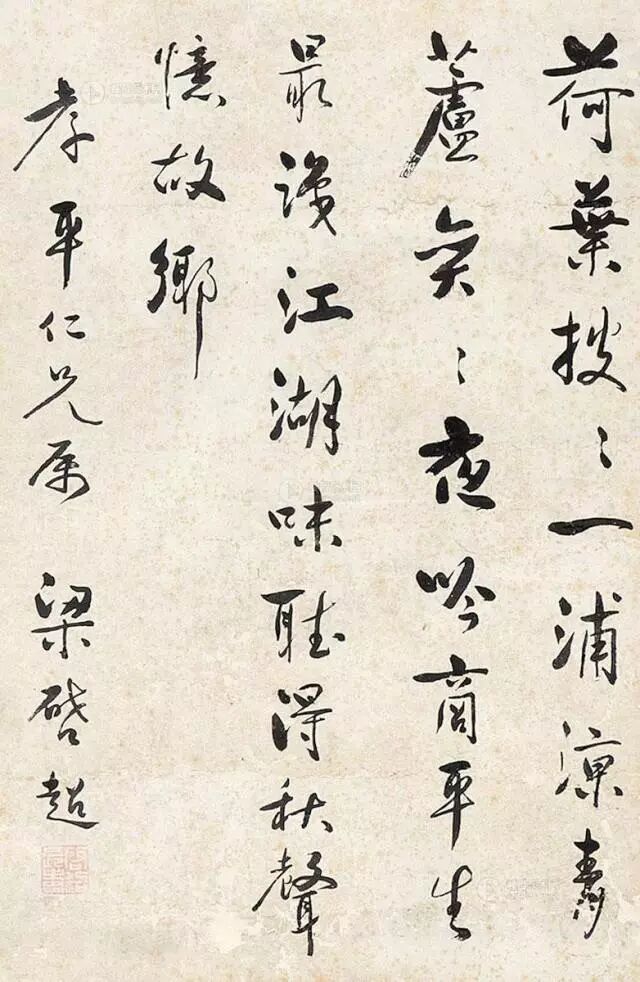 荷葉披〻一浦涼青
蘆奕〻夜吟商平生
最識江湖味聽得秋聲
憶故鄉
孝平仁兄属 梁啓超